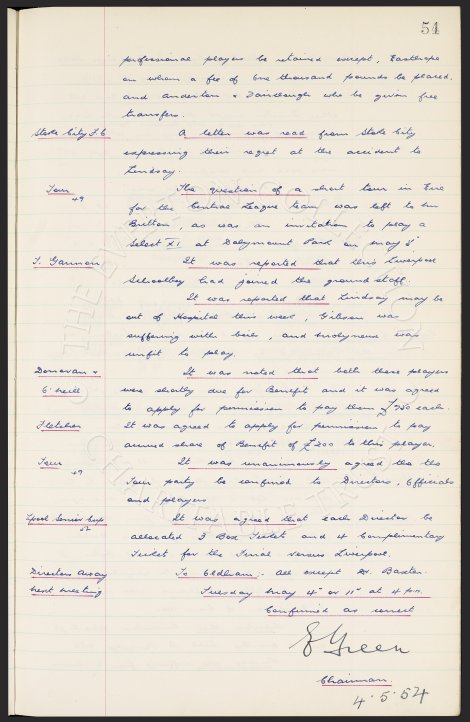 54
professional players be retained except, Easthope
on whom a fee of One thousand pounds be placed,
and Anderton & Fairclough who be given free
transfers.
Stoke City F.C. A letter was read from Stoke City
expressing their regret at the accident to
Lindsay.
Tour The question of a short tour in Eire
49
for the Central League team was left to Mr
Britton, as was an invitation to play a
Select XI at Dalymount Park on May 5"
T. Gannon It was reported that this Liverpool
Schoolboy had joined the ground staff.
It was reported that Lindsay may be
out of Hospital this week, Gibson was
suffering with boils, and Molyneux was
unfit to play.
Donovan & It was noted that both these players
O'Neill were shortly due for Benefit and it was agreed
to apply for permission to pay them £750 each.
Fletcher It was agreed to apply for permission to pay
accrued share of Benefit of £200 to this player.
Tour It was unanimously agreed tha the
49
Tour party be confined to Directors, Officials
and players
Lpool Senior Cup It was agreed that each Director be
52
allocated 3 Box Tickets and 4 Complimentary
Tickets for the Final versus Liverpool.
Directors Away To Oldham. All except Dr. Baxter.
Next Meeting Tuesday May 4" or 11" at 4 p.m.
Confirmed as correct
E Green
Chairman.
4.5.54